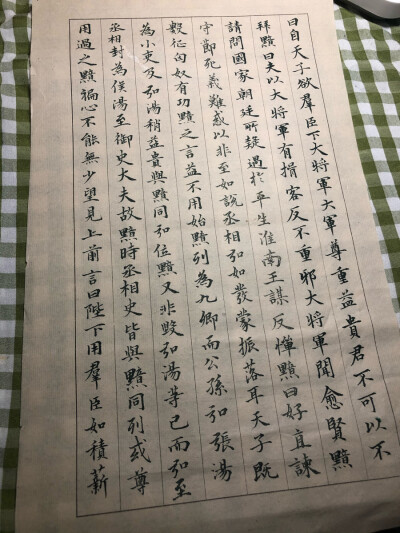 曰自天子欲羣臣下大將軍大軍尊重益貴君不可以不
拜黯曰夫以大將軍有揖客反不重邪大將軍聞愈賢黯
請問國家朝廷所疑過於平生淮南王謀反憚黯曰好直諫
守節死義難惑以非至如說丞相弘如發蒙振落耳天子既
數征匈奴有功黯之言益不用始黯列為九卿而公孫弘張湯
為小吏及弘湯稍益貴與黯同弘位黯又非毀弘湯等已而弘至
丞相封為侯湯至御史大夫故黯時丞相史皆與黯同列或尊
用過之黯褊心不能無少望見上前言曰陛下用羣臣如積薪